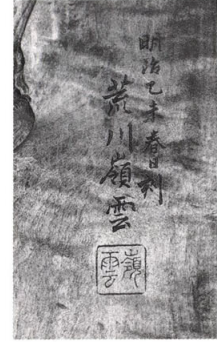 明治乙未春日刻
荒川嶺雲
嶺雲